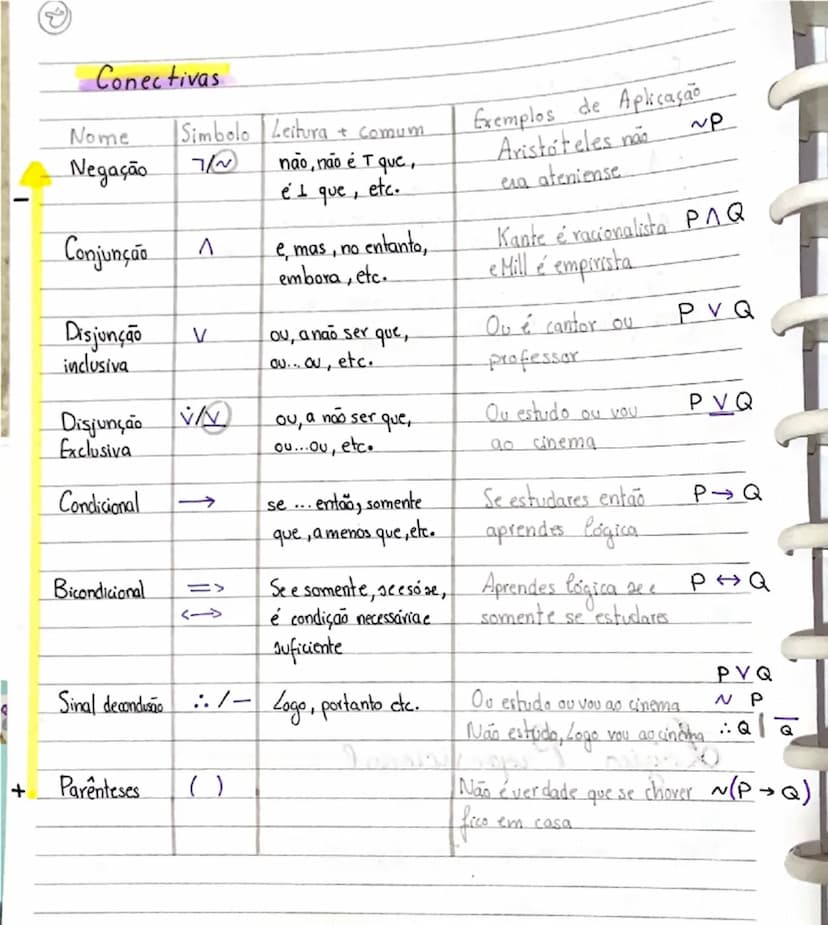 Conectivas
Nome Símbolo Leitura + comum Exemplos de Aplicação
Negação ¬/~ não, não é T que, Aristóteles não ~P
é ⊥ que, etc. era ateniense
-
Conjunção ∧ e, mas, no entanto, Kante é racionalista P ∧ Q
embora, etc. e Mill é empirista
Disjunção ∨ ou, a não ser que, Ou é cantor ou P ∨ Q
inclusiva ou... ou, etc. professor
Disjunção ∨̇/⊻ ou, a não ser que, Ou estudo ou vou P ⊻ Q
Exclusiva ou...ou, etc. ao cinema
Condicional → se ... então, somente Se estudares então P → Q
que, a menos que, etc. aprendes lógica
Bicondicional => Se e somente, se e só se, Aprendes lógica se e P ↔ Q
<-> é condição necessária e somente se estudares
suficiente
P ∨ Q
Sinal de conclusão ∴ / — Logo, portanto etc. Ou estudo ou vou ao cinema ~ P
Não estudo, Logo vou ao cinema ∴ Q | Q̅
+ Parênteses ( ) Não é verdade que se chover ~(P → Q)
fico em casa